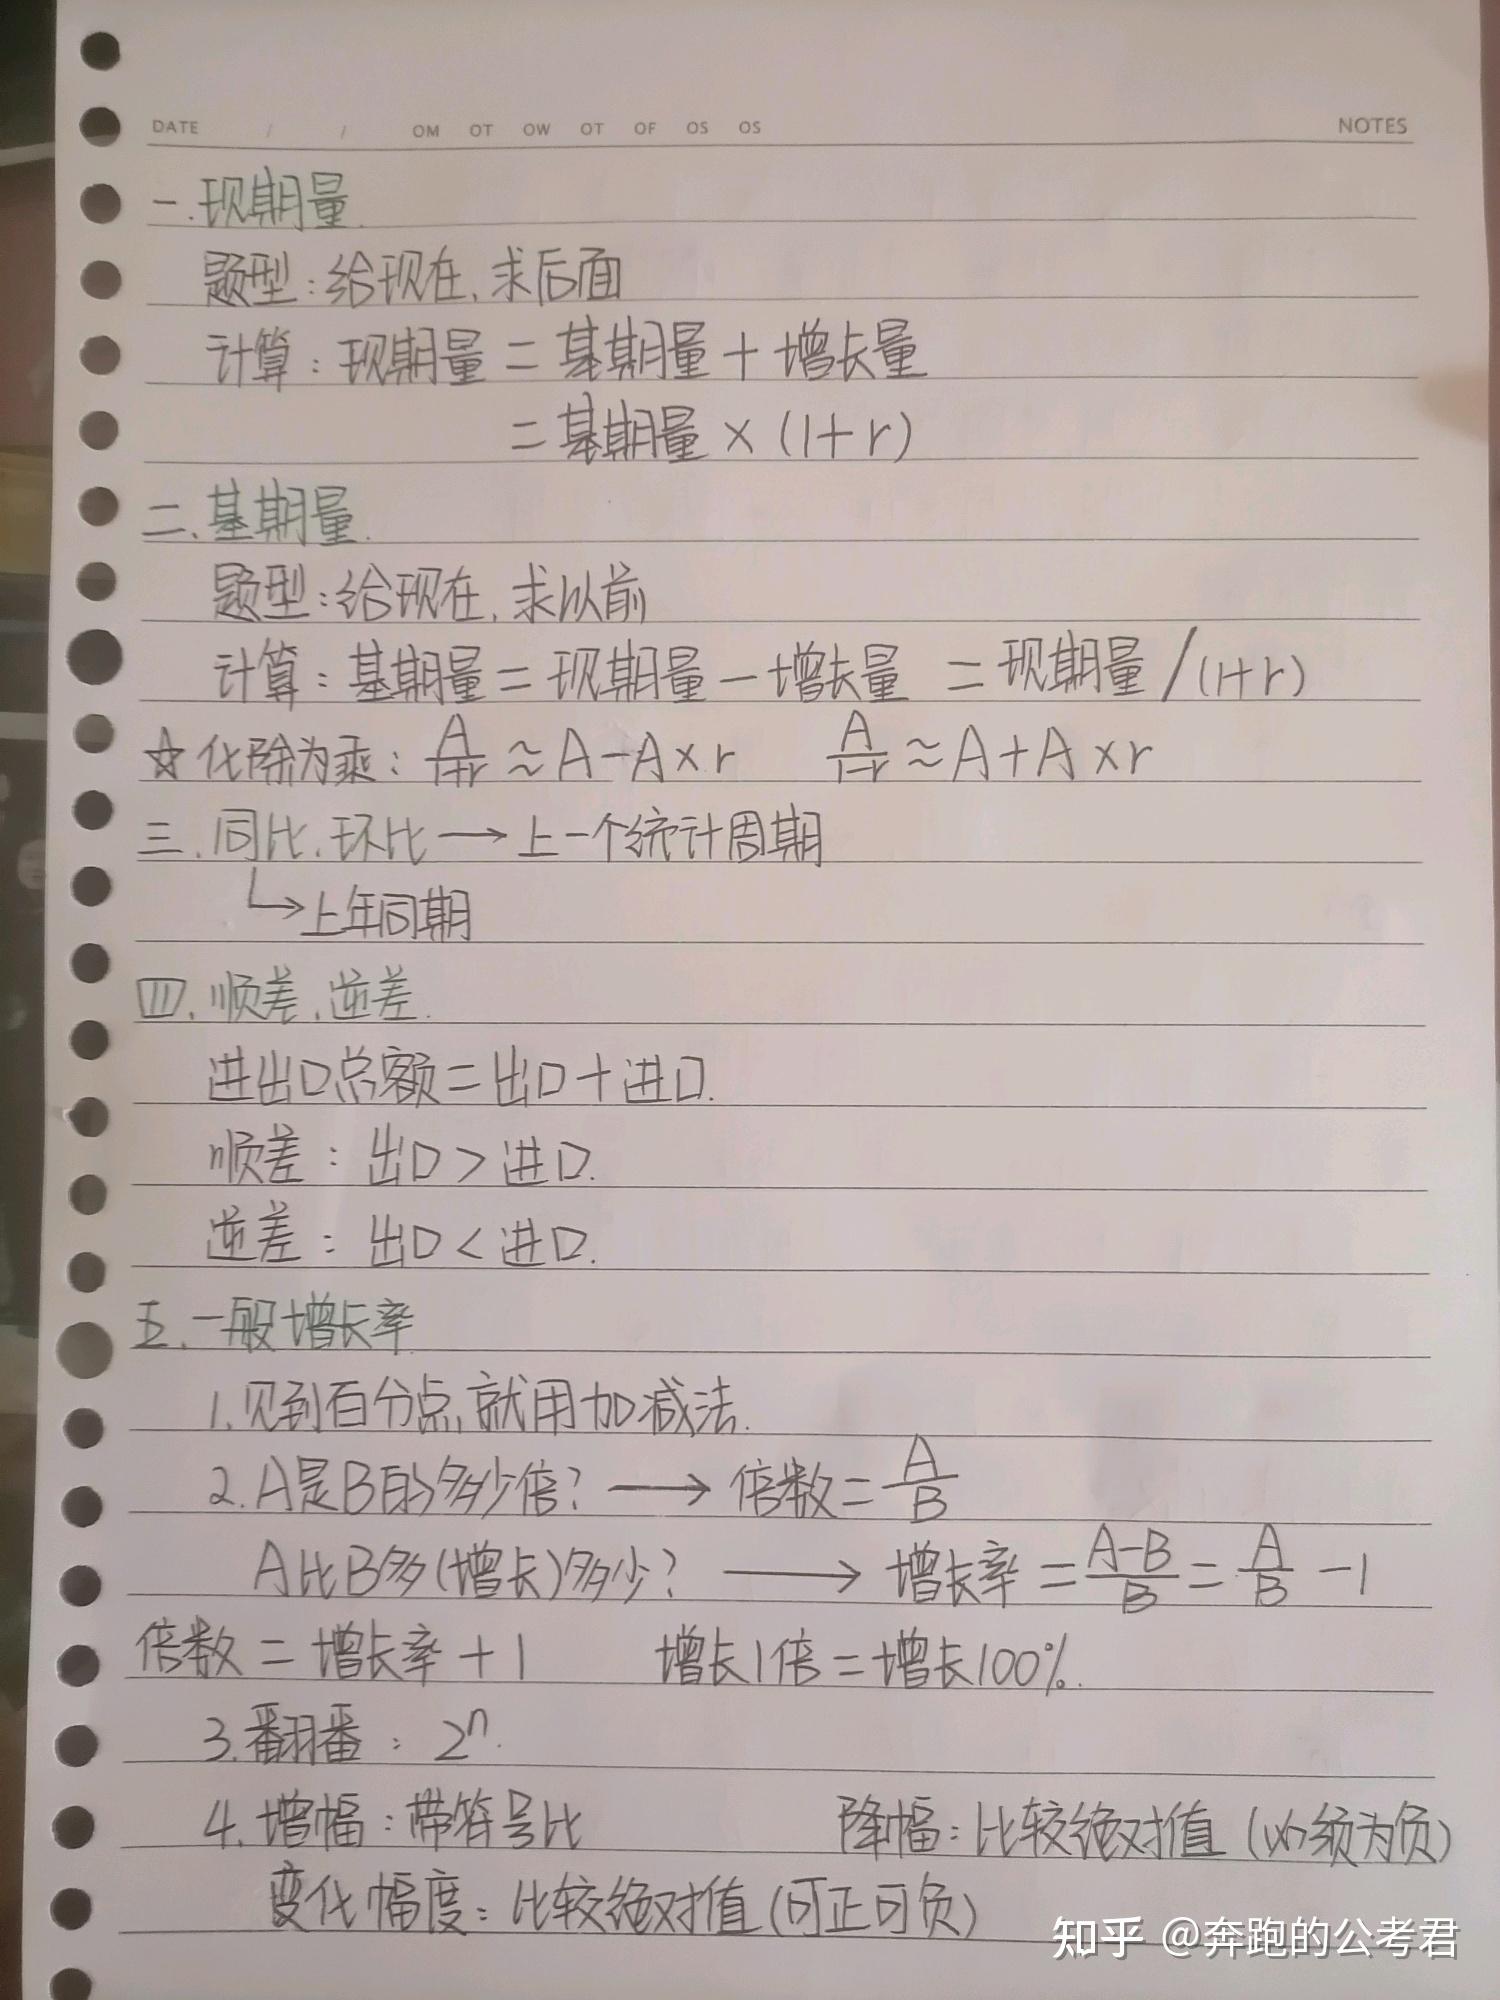 DATE / / OM OT OW OT OF OS OS NOTES
一.现期量.
题型:给现在,求后面
计算:现期量=基期量+增长量
=基期量×(1+r)
二.基期量.
题型:给现在,求以前
计算:基期量=现期量-增长量 =现期量/(1+r)
☆化除为乘: A/1+r ≈ A-A×r A/1-r ≈ A+A×r
三.同比.环比→上一个统计周期
↳上年同期
四.顺差.逆差.
进出口总额=出口+进口.
顺差:出口>进口.
逆差:出口<进口.
五.一般增长率
1.见到百分点,就用加减法.
2.A是B的多少倍?→倍数=A/B
A比B多(增长)多少?→增长率=A-B/B=A/B-1
倍数=增长率+1 增长1倍=增长100%.
3.翻番:2ⁿ.
4.增幅:带符号比 降幅:比较绝对值(必须为负)
变化幅度:比较绝对值(可正可负)
知乎 @奔跑的公考君